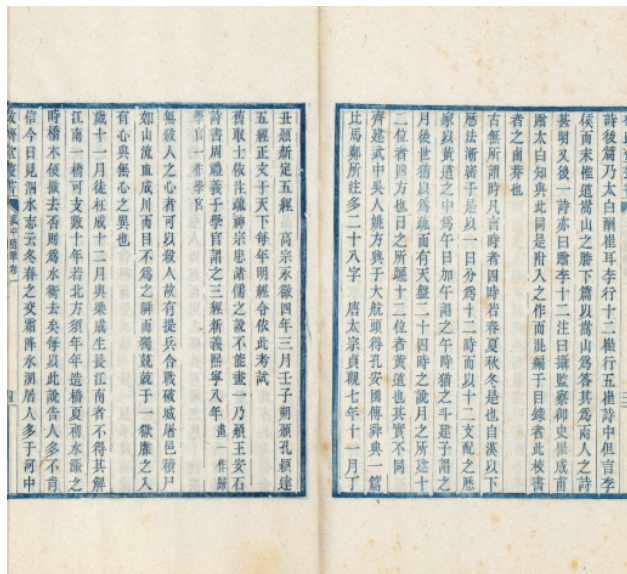 詩後篇乃太白酬崔耳李行十二崔行五崔詩中但言李
侯而末惟道嵩山之勝下篇以嵩山爲答其爲兩人之詩
甚明又後一詩亦曰贈李十二注曰攝監察御史崔成甫
贈太白知與此同是附入之作而混編于目錄者此校書
者之鹵莽也
古無所謂時凡言時者四時若春夏秋冬是也自漢以下
曆法漸密于是以一日分爲十二時而以十二支配之曆
家以黃道之中爲午日加午謂之午時猶之斗建子謂之
月後世猶以爲疏而有天盤二十四時之說月之所建十
二位者四方也日之所躔十二位者黃道也其實不同
齊建武中吳人姚方興于大航頭得孔安國傳舜典一篇
比馬鄭所注多二十八字 唐太宗貞觀七年十一月丁
丑頒新定五經 高宗永徽四年三月壬子朔頒孔穎達
五經正文于天下每年明經令依此考試
舊取士依注疏神宗患諸儒之說不能畫一乃頒王安石
詩書周禮義于學官謂之三經新義熙寧八年 畫一作歸
學官一作學宮
無殺人之心者可以殺人故有提兵合戰破城屠邑積尸
如山流血成川而目不爲之瞬而獨兢兢于一獄牒之入
有心與無心之異也
歲十一月徒杠成十二月輿梁成生長江南者不得其解
江南一橋可支數十年若北方須年年造橋夏初水漲之
時橋木便撤去否則爲水衝去矣每以此說告人多不肯
信今日見泗水志云冬春之交霜降水涸居人多于河中